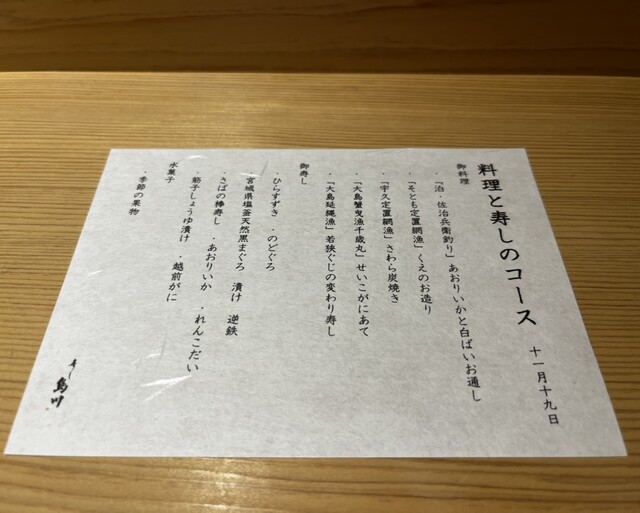 料理と寿しのコース
十一月十九日
御料理
・「泊・佐治兵衛釣り」あおりいかと白ばいお通し
・「そとも定置網漁」くえのお造り
・「宇久定置網漁」さわら炭焼き
・「大島蟹曳漁千歳丸」せいこがにあて
・「大島延縄漁」若狭ぐじの変わり寿し
御寿し
・ひらすずき ・のどぐろ
宮城県塩釜天然黒まぐろ 漬け 逆鉄
・さばの棒寿し ・あおりいか ・れんこだい
・筋子しょうゆ漬け ・越前がに
水菓子
・季節の果物